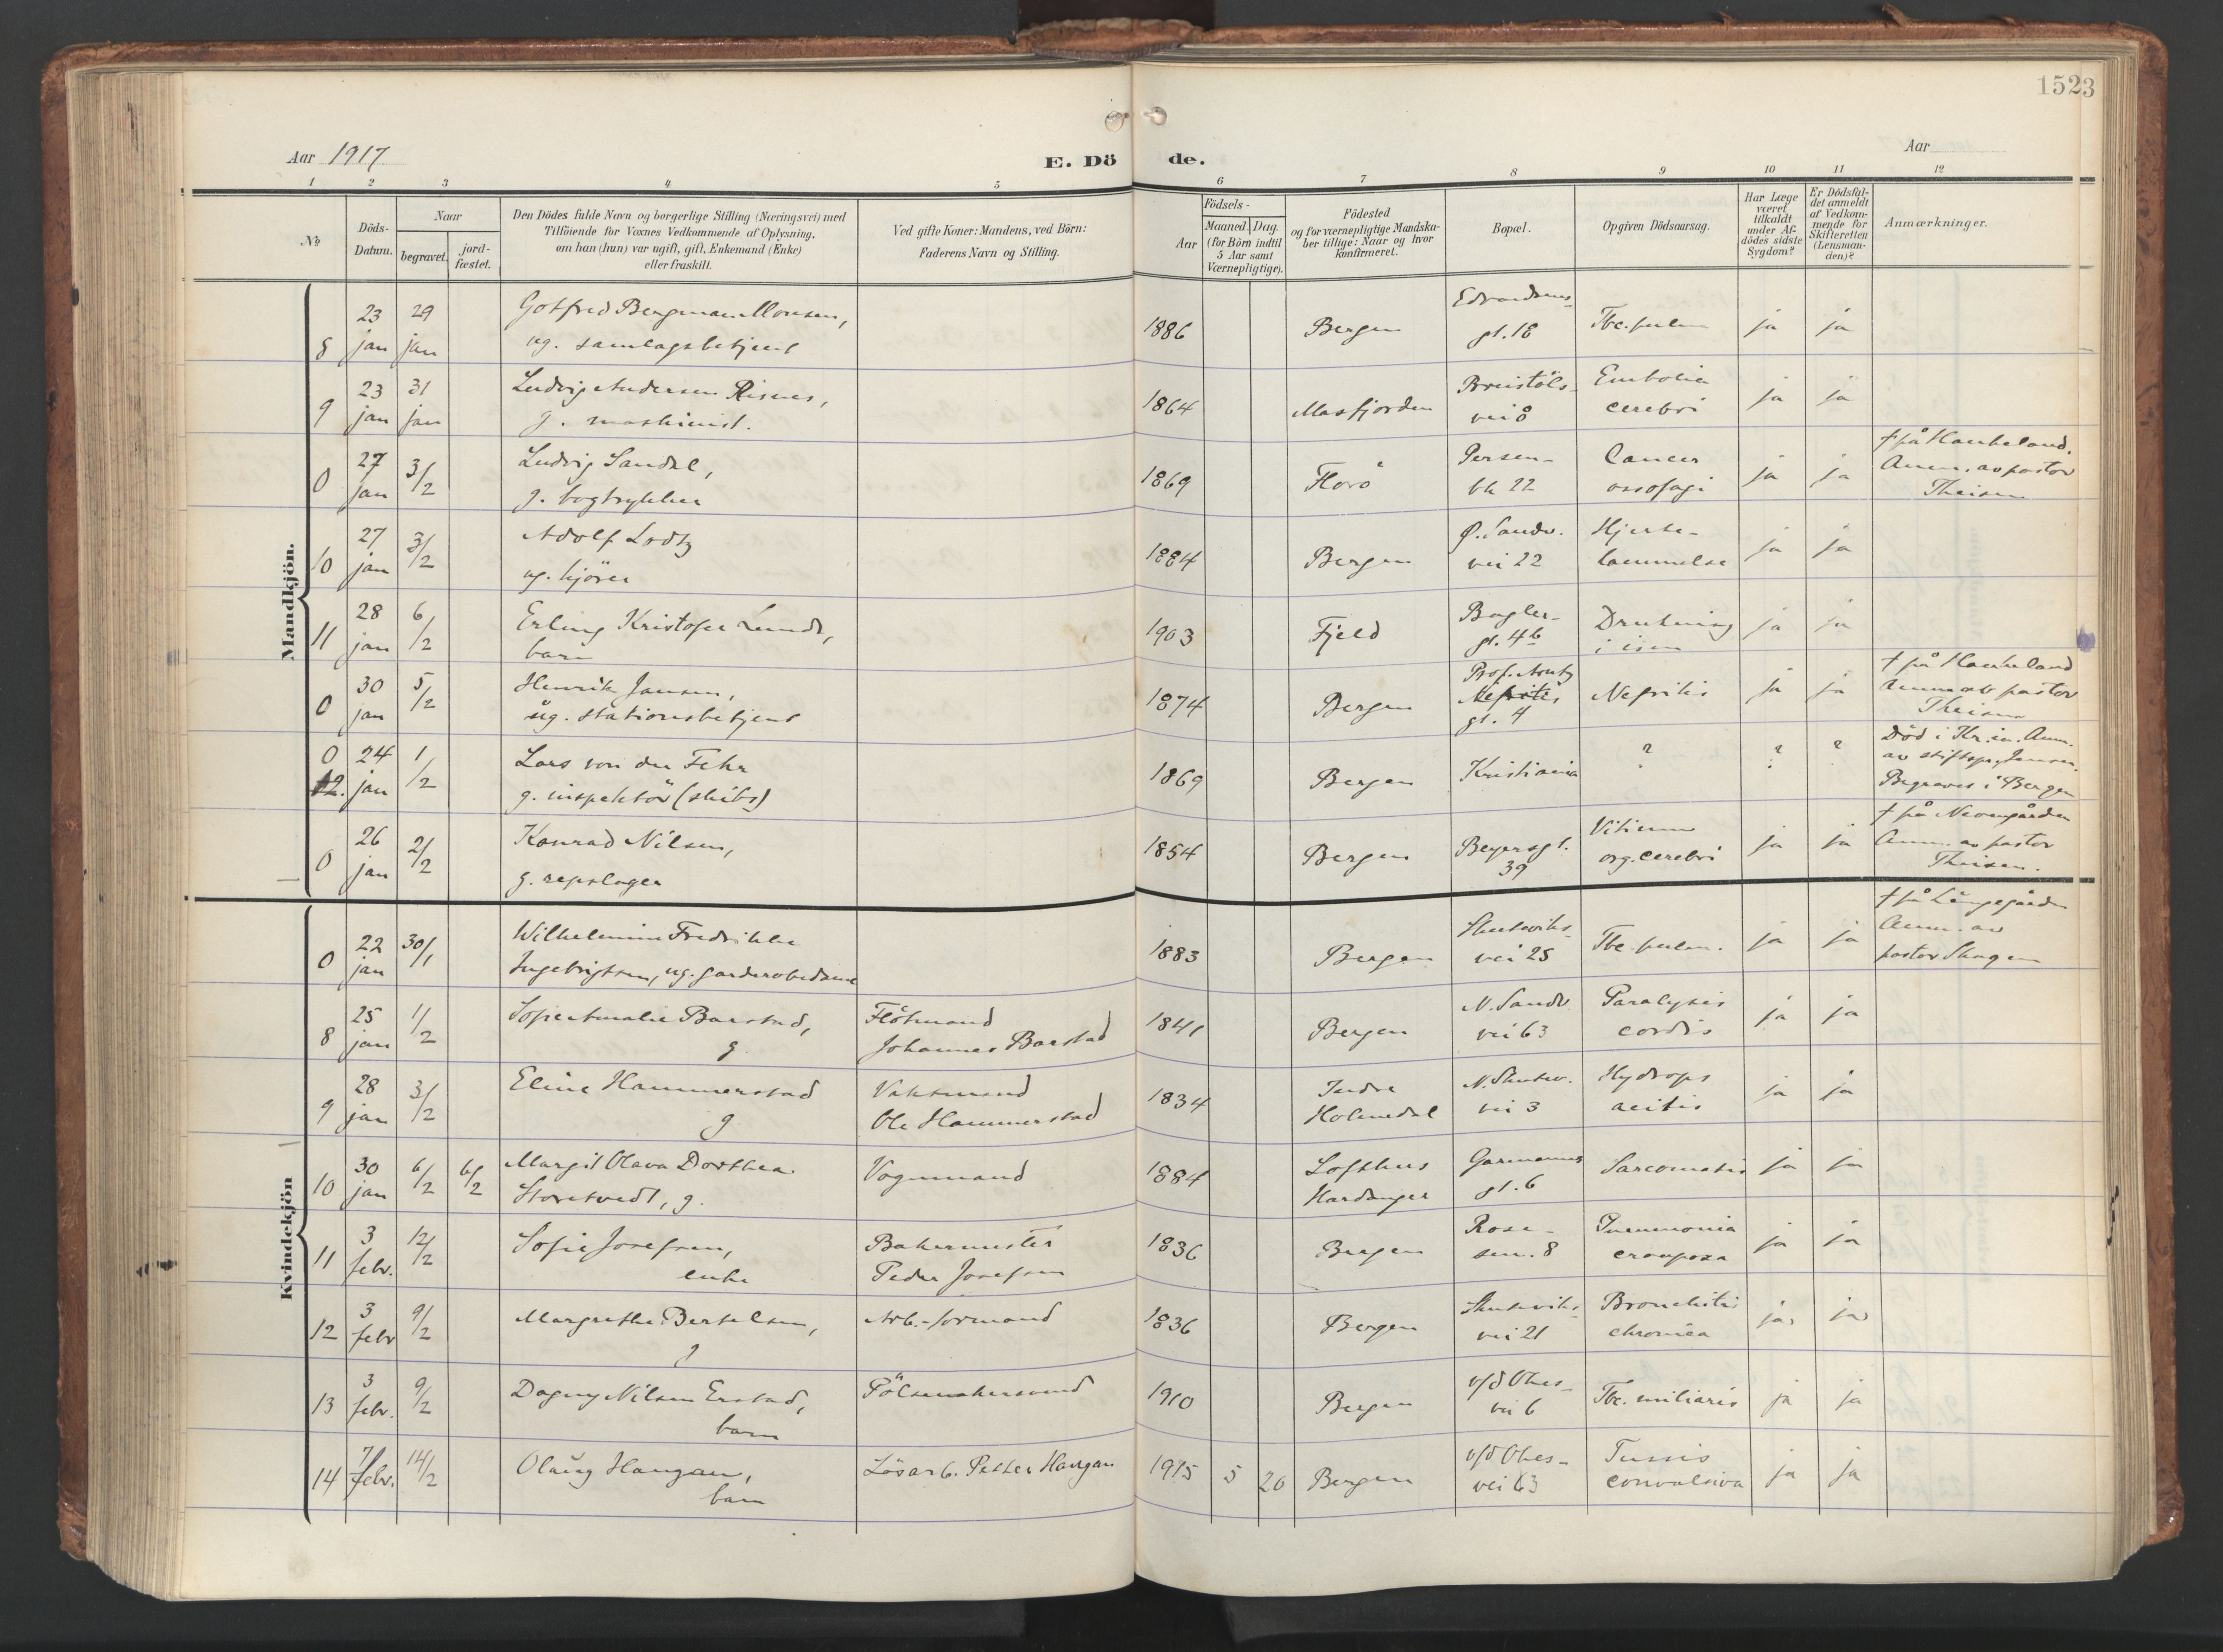 1523
Aar 1917
E. Döde.
Aar
1 2 3 4 5 6 7 8 9 10 11 12
№
Döds-Datum.
Naar
begravet.
jord-fæstet.
Den Dödes fulde Navn og borgerlige Stilling (Næringsvei) med
Tilföiende for Voxnes Vedkommende af Oplysning,
om han (hun) var ugift, gift, Enkemand (Enke)
eller fraskilt.
Ved gifte Koner: Mandens, ved Börn:
Faderens Navn og Stilling.
Födsels-
Aar
Maaned. Dag.
(for Börn indtil
5 Aar samt
Værnepligtige).
Födested
og for værnepligtige Mandska-
ber tillige: Naar og hvor
konfirmeret.
Bopæl.
Opgiven Dödsaarsag.
Har Læge
været
tilkaldt
under Af-
dödes sidste
Sygdom?
Er Dödsfal-
det anmeldt
af Vedkom-
mende for
Skifteretten
(Lensman-
den)?
Anmærkninger.
Mandkjön.
8 23 jan 29 jan Gotfred Bergman Monsen,
ug. samlagsbetjent
1886 Bergen gt. 18 Tbc. pulm ja ja
9 23 jan 31 jan Ludvig Andersen Risnes,
g. maskinist.
1864 Masfjorden Breistöls-
vei 8 Embolia
cerebri ja ja
0 27 jan 3/2 Ludvig Sandal,
g. bogtrykker
1869 Florö Persen-
bk 22 Cancer
oesofagi ja ja † på Haukeland.
Anm. av pastor
Theisen
10 27 jan 3/2 Adolf Lodtz
ug. kjörer
1884 Bergen Ø. Sandv.
vei 22 Hjerte-
lammelse ja ja
11 28 jan 6/2 Erling Kristofer Lunde,
barn
1903 Fjeld Bagler-
gt. 4b Drukning
i isen ja ja
0 30 jan 5/2 Henrik Jansen,
ug. stationsbetjent
1874 Bergen Prof.
Nefritis
gt. 4 Nefritis ja ja † på Haukeland
Anm av pastor
Theisen
0 12. 24 jan 1/2 Lars von der Fehr
g. inspektör (skibs)
1869 Bergen Kristiania ? ? ? Död i Kr.ia. Anm.
av stiftspr. Jensen.
Begraves i Bergen
0 26 jan 2/2 Konrad Nilsen,
g. repslager
1854 Bergen Beyersgt.
39 Vitium
org. cerebri ja ja † på Nevengården
Anm. av pastor
Theisen.
Kvindekjön
0 22 jan 30/1 Wilhelmine Fredrikke
Ingebrigtsen, ug. garderobedame
1883 Bergen Skuteviks-
vei 25 Tbc. pulm. ja ja † på Lungegården
Anm. av
pastor Skagen
8 25 jan 1/2 Sofie Amalie Barstad,
g Flötmand
Johannes Barstad
1841 Bergen N. Sandv.
vei 63 Paralysis
cordis ja ja
9 28 jan 3/2 Eline Hammerstad
g Vaktmand
Ole Hammerstad
1834 Indre
Holmedal N. Skutev.
vei 3 Hydrops
acitis ja ja
10 30 jan 6/2 6/2 Margit Olava Dorthea
Storetvedt, g. Vognmand
1884 Lofthus
Hardanger Garmanns
gt. 6 Sarcomatis ja ja
11 3 febr. 12/2 Sofie Josefsen,
enke Bakermester
Peder Josefsen
1836 Bergen Rose-
sm. 8 Pneumonia
crouposa ja ja
12 3 febr 9/2 Margrethe Bertelsen,
g Arb.-formand
1836 Bergen Skuteviks-
vei 21 Bronchitis
chronica ja ja
13 3 febr. 9/2 Dagny Nilsen Erstad,
barn Pölsemakersvend
1910 Bergen
vei 6 Tbc. miliaris ja ja
14 7/febr. 14/2 Olaug Haugan,
barn Lösarb. Petter Haugan
1915 5 20 Bergen
vei 63 Tussis
convulsiva ja ja